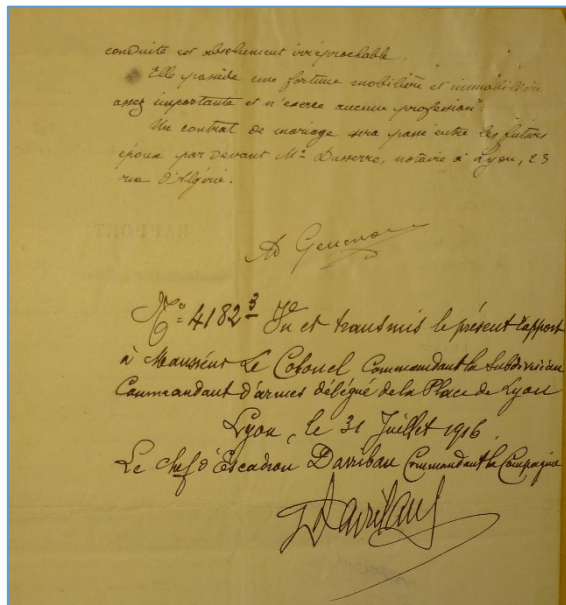 conduite est absolument irréprochable.
Elle possède une fortune mobilière et immobilière
assez importante et n'exerce aucune profession.
Un contrat de mariage sera passé entre les futurs
époux par devant Me Dusserre, notaire à Lyon, 23
rue d'Algérie.
RAPPORT
Ad
N° 4182 3 Vu et transmis le présent rapport
à Monsieur Le Colonel Commandant la Subdivision
Commandant d'armes délégué de la Place de Lyon
Lyon, le 31 Juillet 1916
Le Chef d'Escadron Darriban Commandant la Compagnie